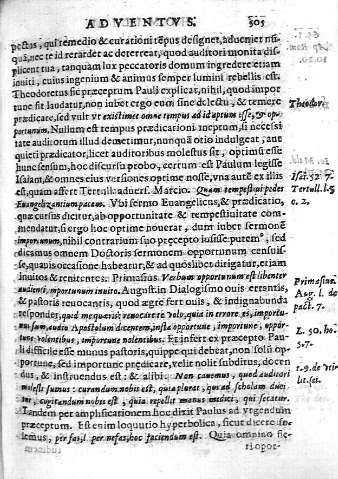 ADVENTVS. 305
pectas, qui remedio & curationi tẽpus designet, adueniet nũ-
quã, nec te id retardet ac deterreat, quod auditori monita dis-
plicent tua, tanquam lux peccatoris domum ingredere etiam
inuiti, cuius ingenium & animus semper lumini rebellis est.
Theodoretus sic præceptum Pauli explicat, nihil, quod impor
tune fit laudatur, non iubet ergo eum sine delectu, & temere
prædicare, sed vult vt existimet omne tempus ad id aptum esse, & op-
portunum, Nullum est tempus prædicationi ineptum, si necessi
tate auditorum illud demetimur, nunquã otio indulgeat, aut
quieti prædicator, licet auditoribus molestus sit, optimus esse
hunc sensum, hoc discursu probo, certum est Paulum legisse
Isaiam, & omnes eius versiones optime nosse, vna autẽ ex illis
est, quam affert Tertull. aduers. Marcio. Quam tempestiui pedes
Euangelizantium pacem. Vbi sermo Euangelicus, & prædicatio,
quæ cursus dicitur, ab opportunitate & tempestiuitate com-
mendatur, si ergo hoc optime nouerat, dum iubet sermonẽ
importunum, nihil contrarium suo præcepto iussisse putemᵒ, sed
dicamus omnem Doctoris sermonem opportunum censuis-
se, quauis occasione habeatur, & ad quoslibet dirigatur, etiam
inuitos & renitentes. Primasius. Verbum opportunum est libenter
audienti, importunum inuito. Augustin. Dialogismo ouis errantis,
& pastoris reuocantis, quod ægre fert ouis, & indignabunda
respondet, quid me quæris; reuocare te volo, quia in errore es, importu-
nus sum, audio Apostolum dicentem, insta opportune, importune, oppor-
tune volentibus, importune nolentibus. Et infert ex præcepto Pau-
li difficile esse munus pastoris, quippe qui debeat, non solũ op-
portune, sed importune prędicare, velit nolit subditus, docen
dus, & instruendus est: & alibi. Non caueamus, quod auditori
molesti sumus: curandum nobis est, quia plorat, qui ad scholam duci-
tur, cogitandum nobis est, quia repellit manus medici, qui secatur.
Tandem per amplificationem hoc dixit Paulus ad vrgendum
præceptum. Est enim loquutio hyperbolica, sicut dicere so-
lemus, per fas, & per nefas, hoc faciendum est. Quia omnino fie-
ri opor-
Theodor.
Isai. 52. 7.
Tertull. 5
c. 2.
Primasius.
Aug. l. de
past. 7.
L. 50. ho.